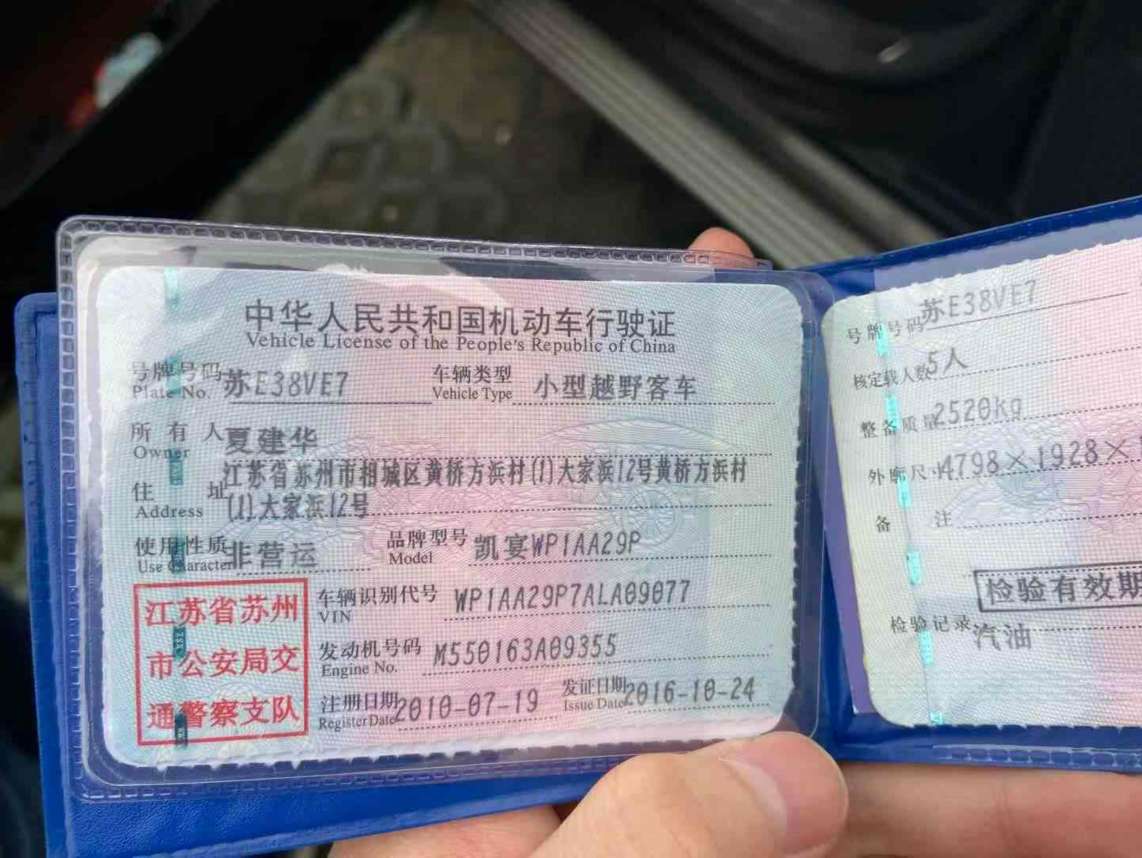 中华人民共和国机动车行驶证
Vehicle License of the People's Republic of China
号牌号码 苏E38VE7 车辆类型 小型越野客车
Plate No. Vehicle Type
所有人 夏建华
Owner
住址 江苏省苏州市相城区黄桥方浜村(1)大家浜12号黄桥方浜村
Address (1)大家浜12号
使用性质 非营运 品牌型号 凯宴WP1AA29P
Use Character Model
江苏省苏州
市公安局交
通警察支队
车辆识别代号 WP1AA29P7ALA09077
VIN
发动机号码 M550163A09355
Engine No.
注册日期 2010-07-19 发证日期 2016-10-24
Register Date Issue Date
号牌号码 苏E38VE7
核定载人数 5人
整备质量 2520kg
外廓尺寸 4798×1928×
备注
检验有效期
检验记录
汽油